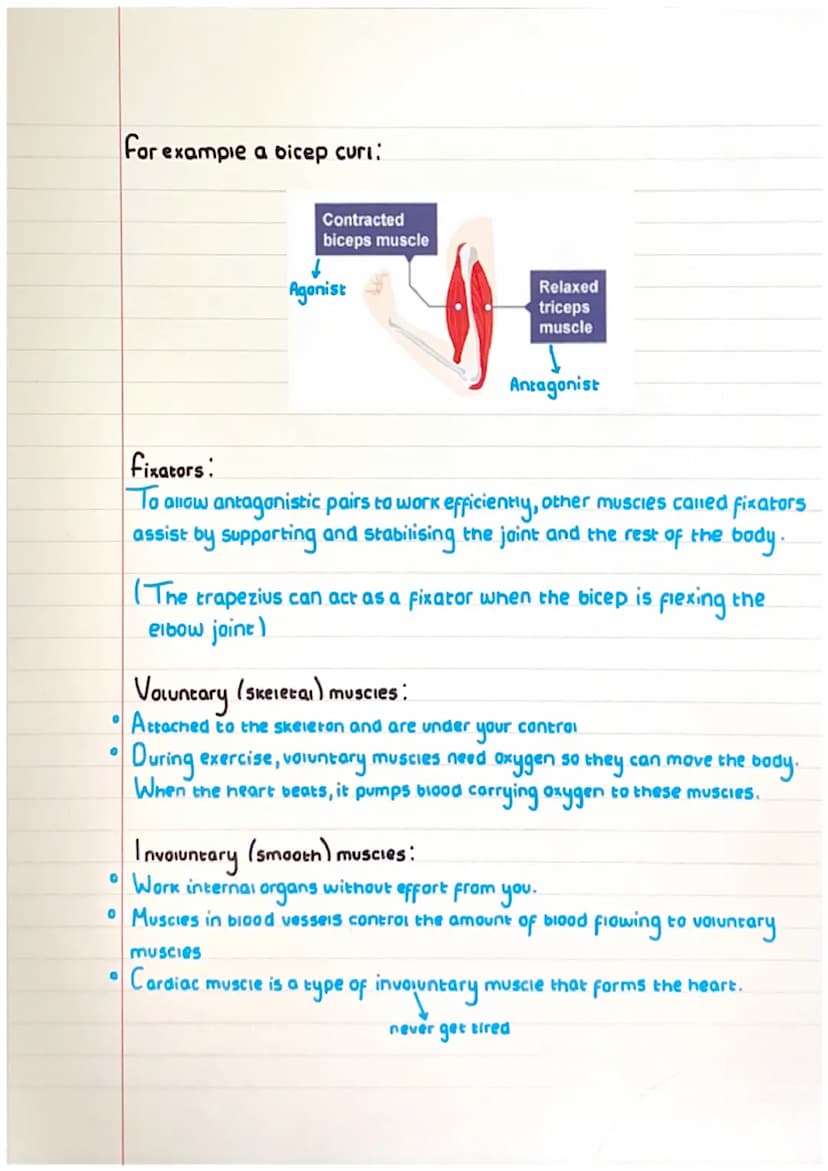 For example a bicep curl:
Contracted
biceps muscle
Agonist
Relaxed
triceps
muscle
Antagonist
Fixators:
To allow antagonistic pairs to work efficiently, other muscles called fixators
assist by supporting and stabilising the joint and the rest of the body.
(The trapezius can act as a fixator when the bicep is flexing the
elbow joint)
Voluntary (skeletal) muscles:
• Attached to the skeleton and are under your control
• During exercise, voluntary muscles need oxygen so they can move the body.
When the heart beats, it pumps blood carrying oxygen to these muscles.
Involuntary (smooth) muscles:
• Work internal organs without effort from you.
• Muscles in blood vessels control the amount of blood flowing to voluntary
muscles
• Cardiac muscle is a type of involuntary muscle that forms the heart.
never get tired